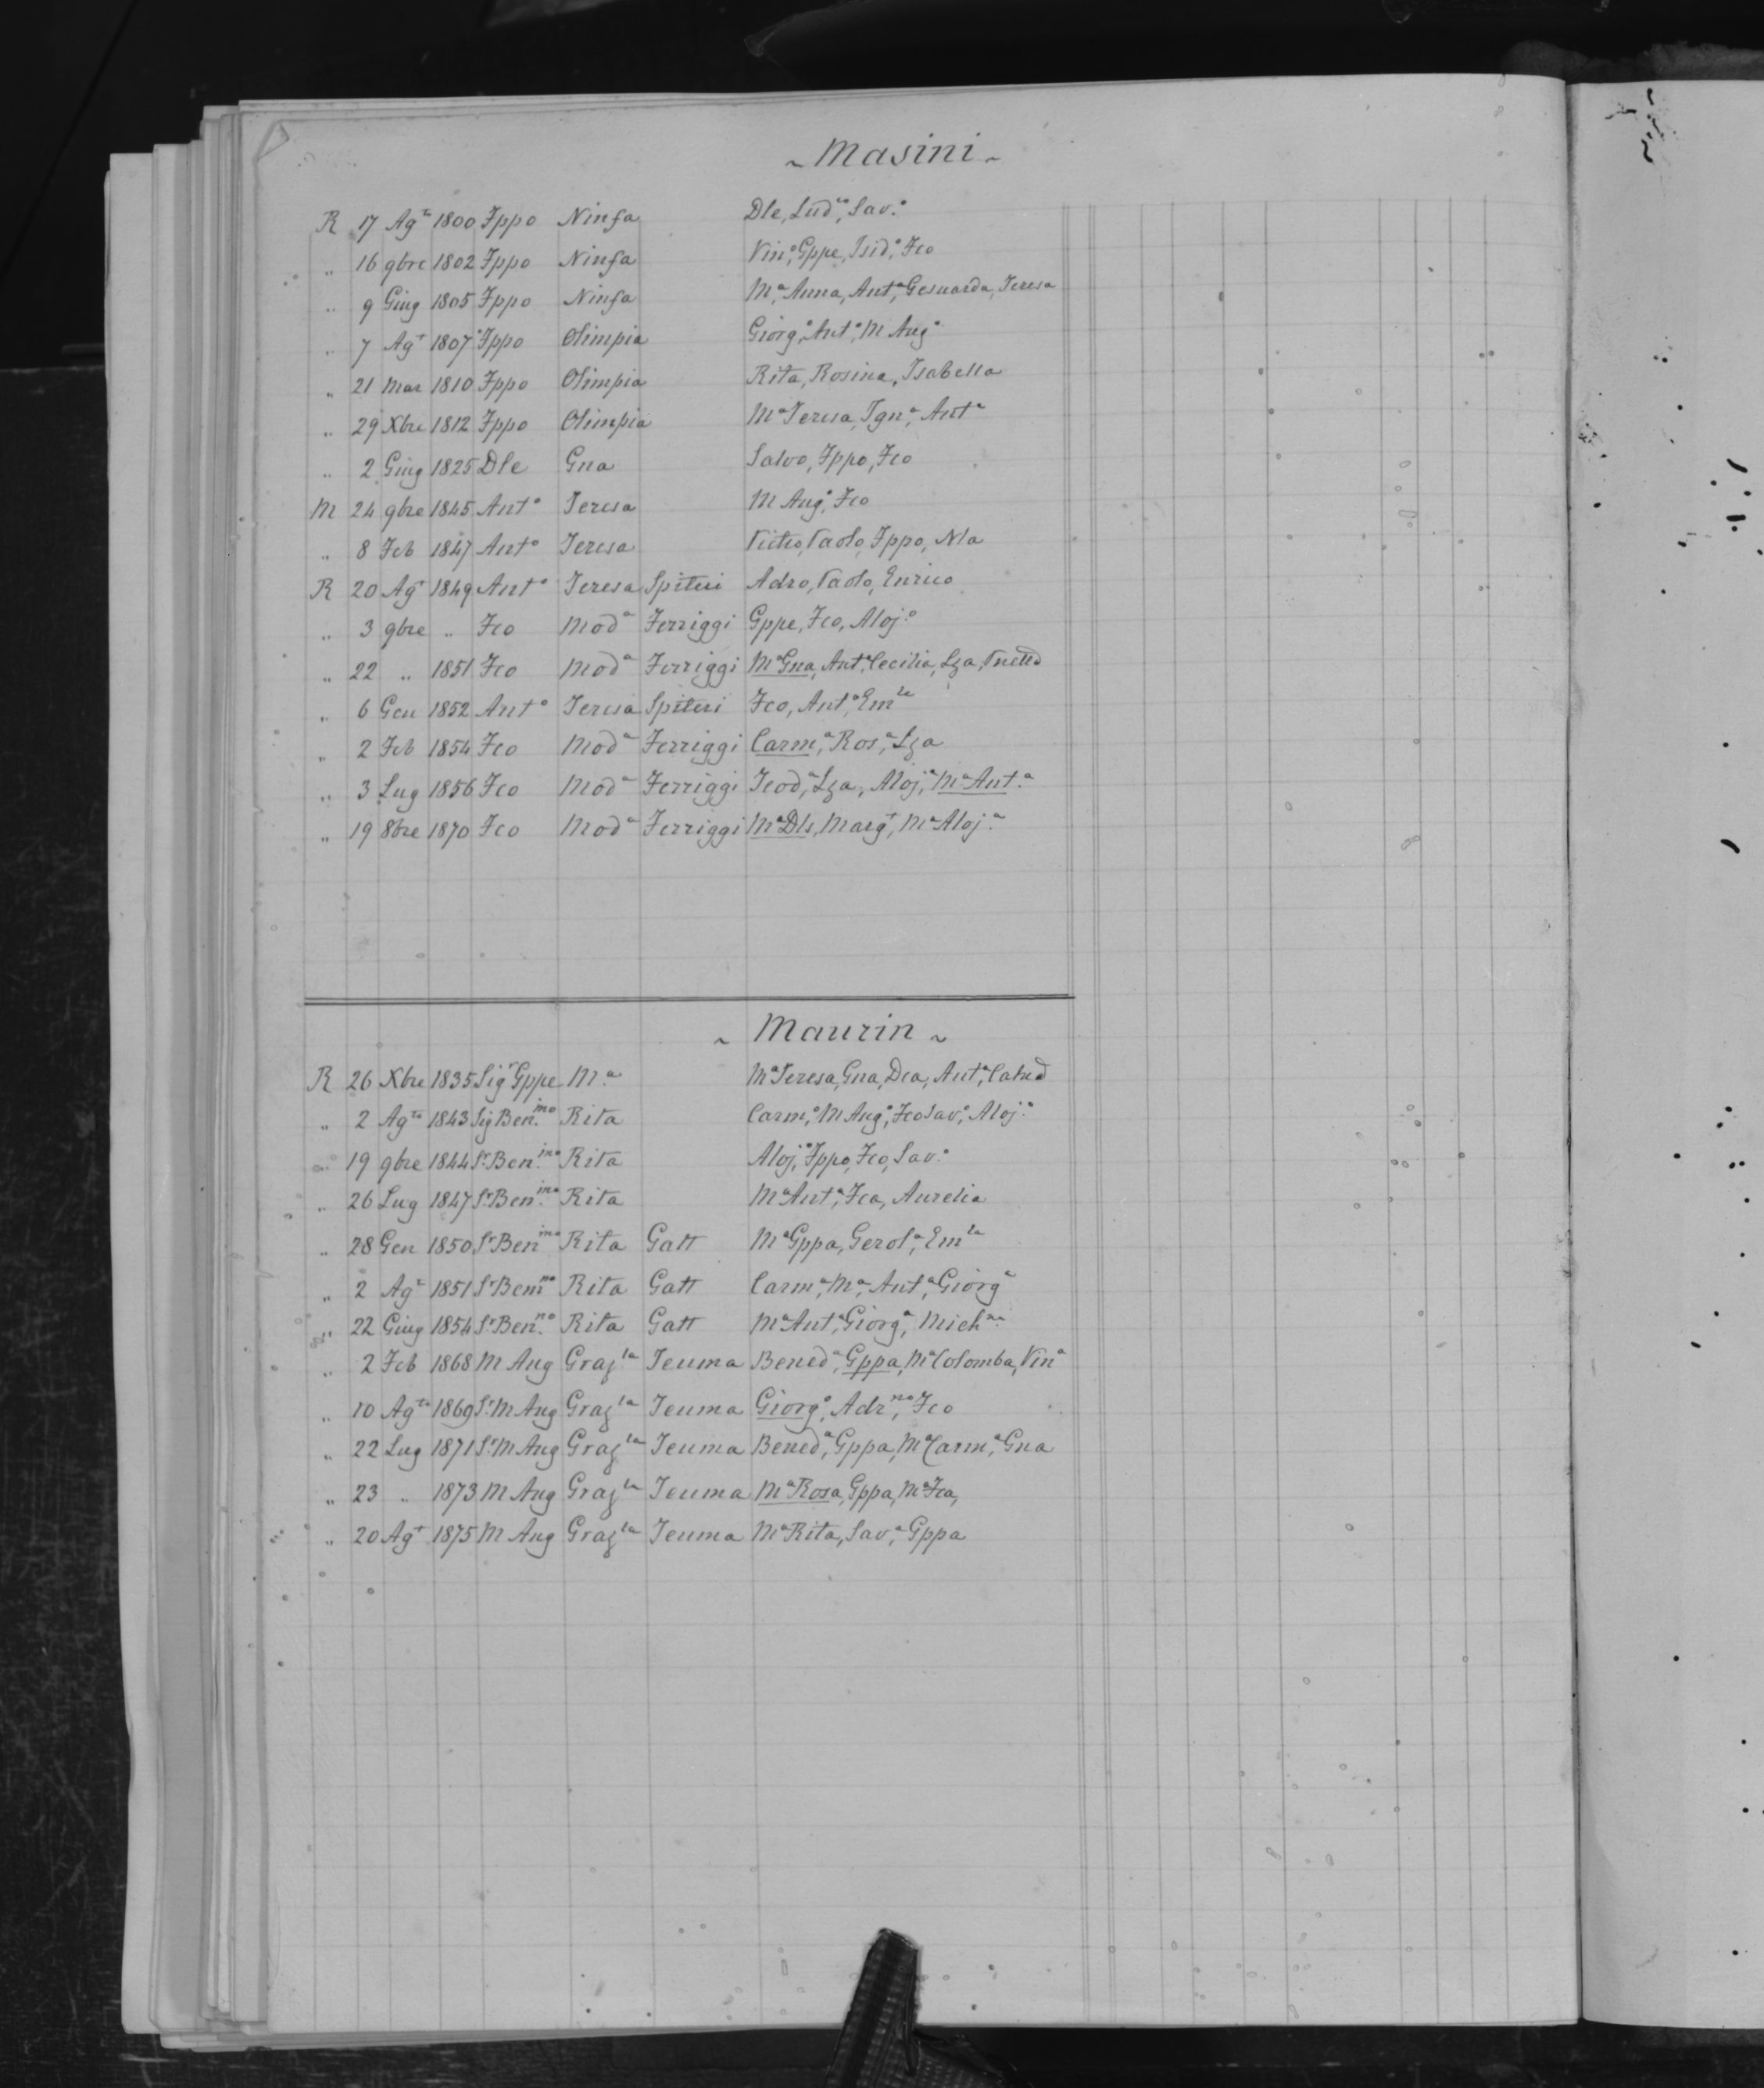 ~ Masini ~
R 17 Agto 1800 Fppo Ninfa Dle, Ludco, Savo
" 16 9bre 1802 Fppo Ninfa Vino, Gppe, Isido, Fco
" 9 Giug 1805 Fppo Ninfa Ma, Anna, Anta, Gesuarda, Teresa
" 7 Agt 1807 Fppo Olimpia Giorgo, Anto, M Ango
" 21 Mar 1810 Fppo Olimpia Rita, Rosina, Isabella
" 29 Xbre 1812 Fppo Olimpia Ma Teresa, Igna, Anta
" 2 Giug 1825 Dle Gna Salvo, Fppo, Fco
M 24 9bre 1845 Anto Teresa M Ango, Fco
" 8 Feb 1847 Anto Teresa Paolo, Fppo, Nla
R 20 Agt 1849 Anto Teresa Spiteri Adro, Paolo, Enrico
" 3 9bre " Fco Moda Ferriggi Gppe, Fco, Alojo
" 22 " 1851 Fco Moda Ferriggi Ma Gna, Anta, Cecilia, Lza,
" 6 Gen 1852 Anto Teresa Spiteri Fco, Anto, Emle
" 2 Feb 1854 Fco Moda Ferriggi Carma, Rosa, Lza
" 3 Lug 1856 Fco Moda Ferriggi Teoda, Lza, Aloja, Ma Anta
" 19 8bre 1870 Fco Moda Ferriggi Ma Dls, Margt, Ma Aloja
~ Maurin ~
R 26 Xbre 1835 Sigr Gppe Ma Ma Teresa, Gna, Dca, Anta,
" 2 Agto 1843 Sig Benino Rita Carmo, M Ango, Fco Savo, Alojo
" 19 9bre 1844 Sr Benino Rita Alojo, Fppo, Fco, Savo
" 26 Lug 1847 Sr Benino Rita Ma Anta, Fca, Aurelia
" 28 Gen 1850 Sr Benino Rita Gatt Ma Gppa, Gerola, Emla
" 2 Agt 1851 Sr Benno Rita Gatt Carma, Ma, Anta, Giorga
" 22 Giug 1854 Sr Benno Rita Gatt Ma Anta, Giorga, Michna
" 2 Feb 1868 M Ang Grazla Teuma Beneda, Gppa, Ma Colomba, Vina
" 10 Agto 1869 Sr M Ang Grazla Teuma Giorgo, Adrno, Fco
" 22 Lug 1871 Sr M Ang Grazla Teuma Beneda, Gppa, Ma Carma, Gna
" 23 " 1873 M Ang Grazla Teuma Ma Rosa, Gppa, Ma Fca,
" 20 Agt 1875 M Ang Grazla Teuma Ma Rita, Sava, Gppa